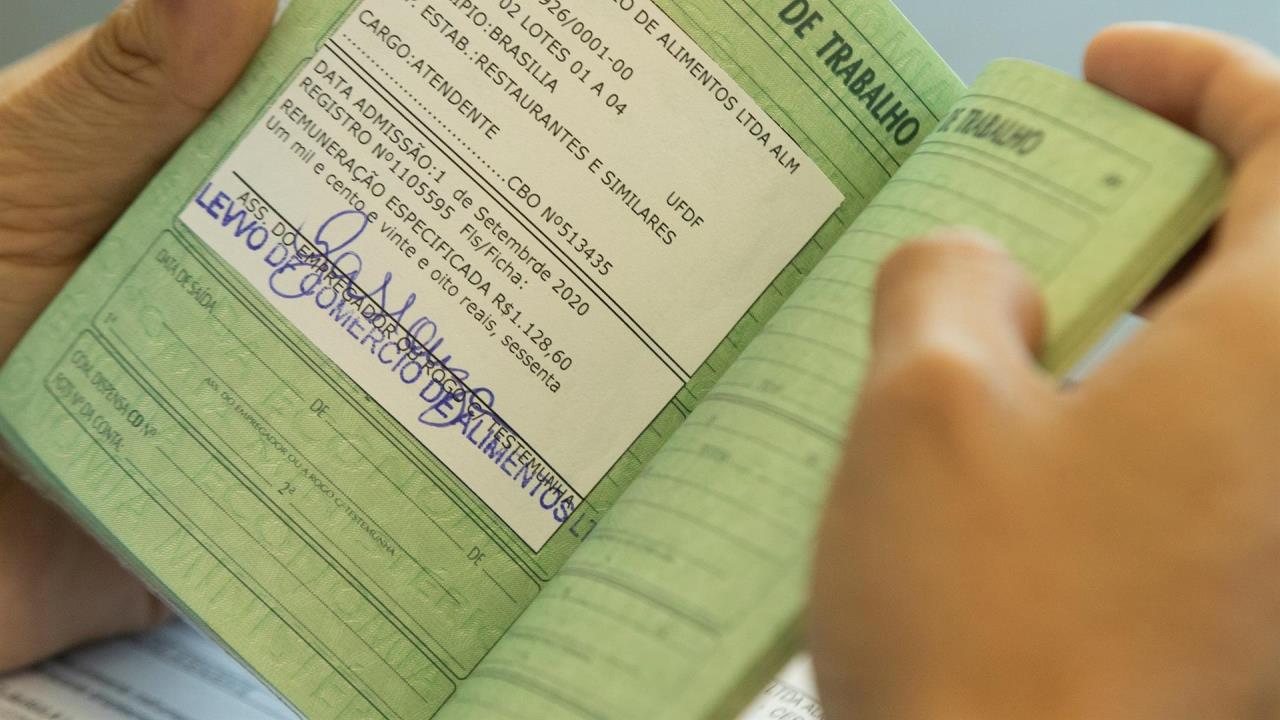 DE TRABALHO
O DE ALIMENTOS LTDA ALM
926/0001-00
02 LOTES 01 A 04
ÍPIO:BRASILIA UFDF
. ESTAB.:RESTAURANTES E SIMILARES
CARGO:ATENDENTE
....................CBO Nº513435
DATA ADMISSÃO:1 de Setembrde 2020
REGISTRO Nº1105595 Fls/Ficha:
REMUNERAÇÃO ESPECIFICADA R$1.128,60
Um mil e cento e vinte e oito reais, sessenta
ASS. DO EMPREGADOR OU ROGO C/ TESTEMUNHA
LEVVO DE COMERCIO DE ALIMENTOS LT
DATA DE SAÍDA DE DE
ASS. DO EMPREGADOR OU A ROGO C/ TESTEMUNHA
1ª 2ª
COM. DISPENSA CD Nº
FGTS Nº DA CONTA:
DE TRABALHO